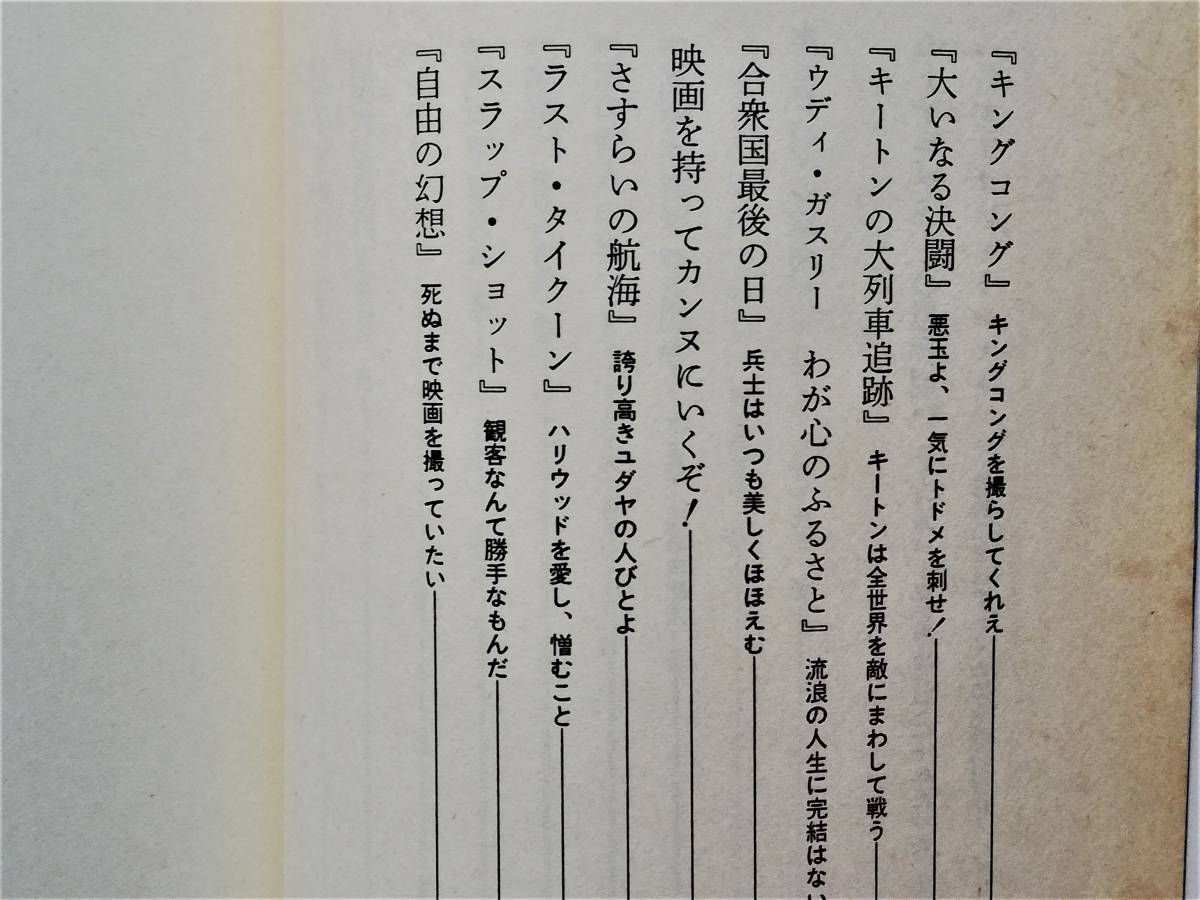 『キングコング』 キングコングを撮らしてくれえ
『大いなる決闘』 悪玉よ、一気にトドメを刺せ！
『キートンの大列車追跡』 キートンは全世界を敵にまわして戦う
『ウディ・ガスリー わが心のふるさと』 流浪の人生に完結はない
『合衆国最後の日』 兵士はいつも美しくほほえむ
映画を持ってカンヌにいくぞ！
『さすらいの航海』 誇り高きユダヤの人びとよ
『ラスト・タイクーン』 ハリウッドを愛し、憎むこと
『スラップ・ショット』 観客なんて勝手なもんだ
『自由の幻想』 死ぬまで映画を撮っていたい